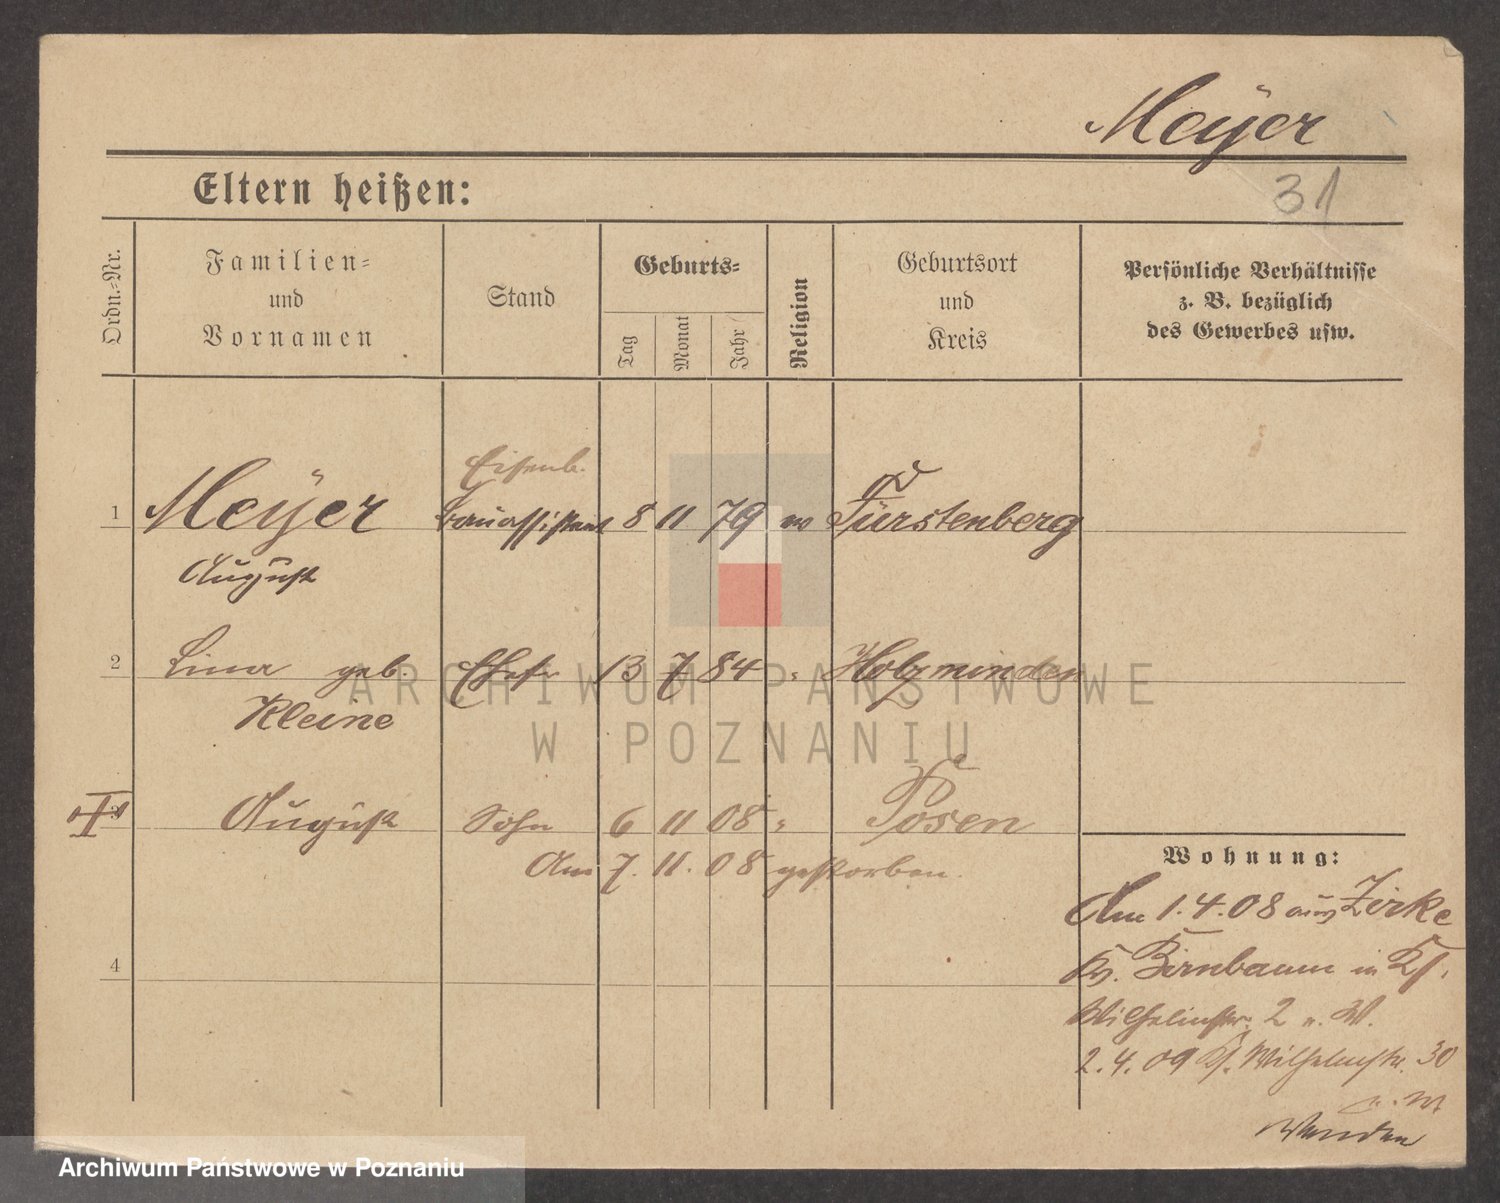 Meyer
31
Eltern heißen:
Ordn.-Nr.
Familien-
und
Vornamen
Stand
Geburts-
Tag
Monat
Jahr
Religion
Geburtsort
und
Kreis
Persönliche Verhältnisse
z. B. bezüglich
des Gewerbes usw.
Eisenb.
1 Meyer Bauassistent 8 11 79 Fürstenberg
August
2 Lina geb. Ehefr 13 7 84 " Holzminden
Kleine
3 August Sohn 6 11 08 " Posen
Am 7. 11. 08 gestorben.
4
Wohnung:
Am 1.4.08 aus Zirke
Kr. Birnbaum in
Wilhelmstr. 2 n. W.
2.4.09 Wilhelmstr. 30
n. W
Wenden
ARCHIWUM PAŃSTWOWE
W POZNANIU
Archiwum Państwowe w Poznaniu